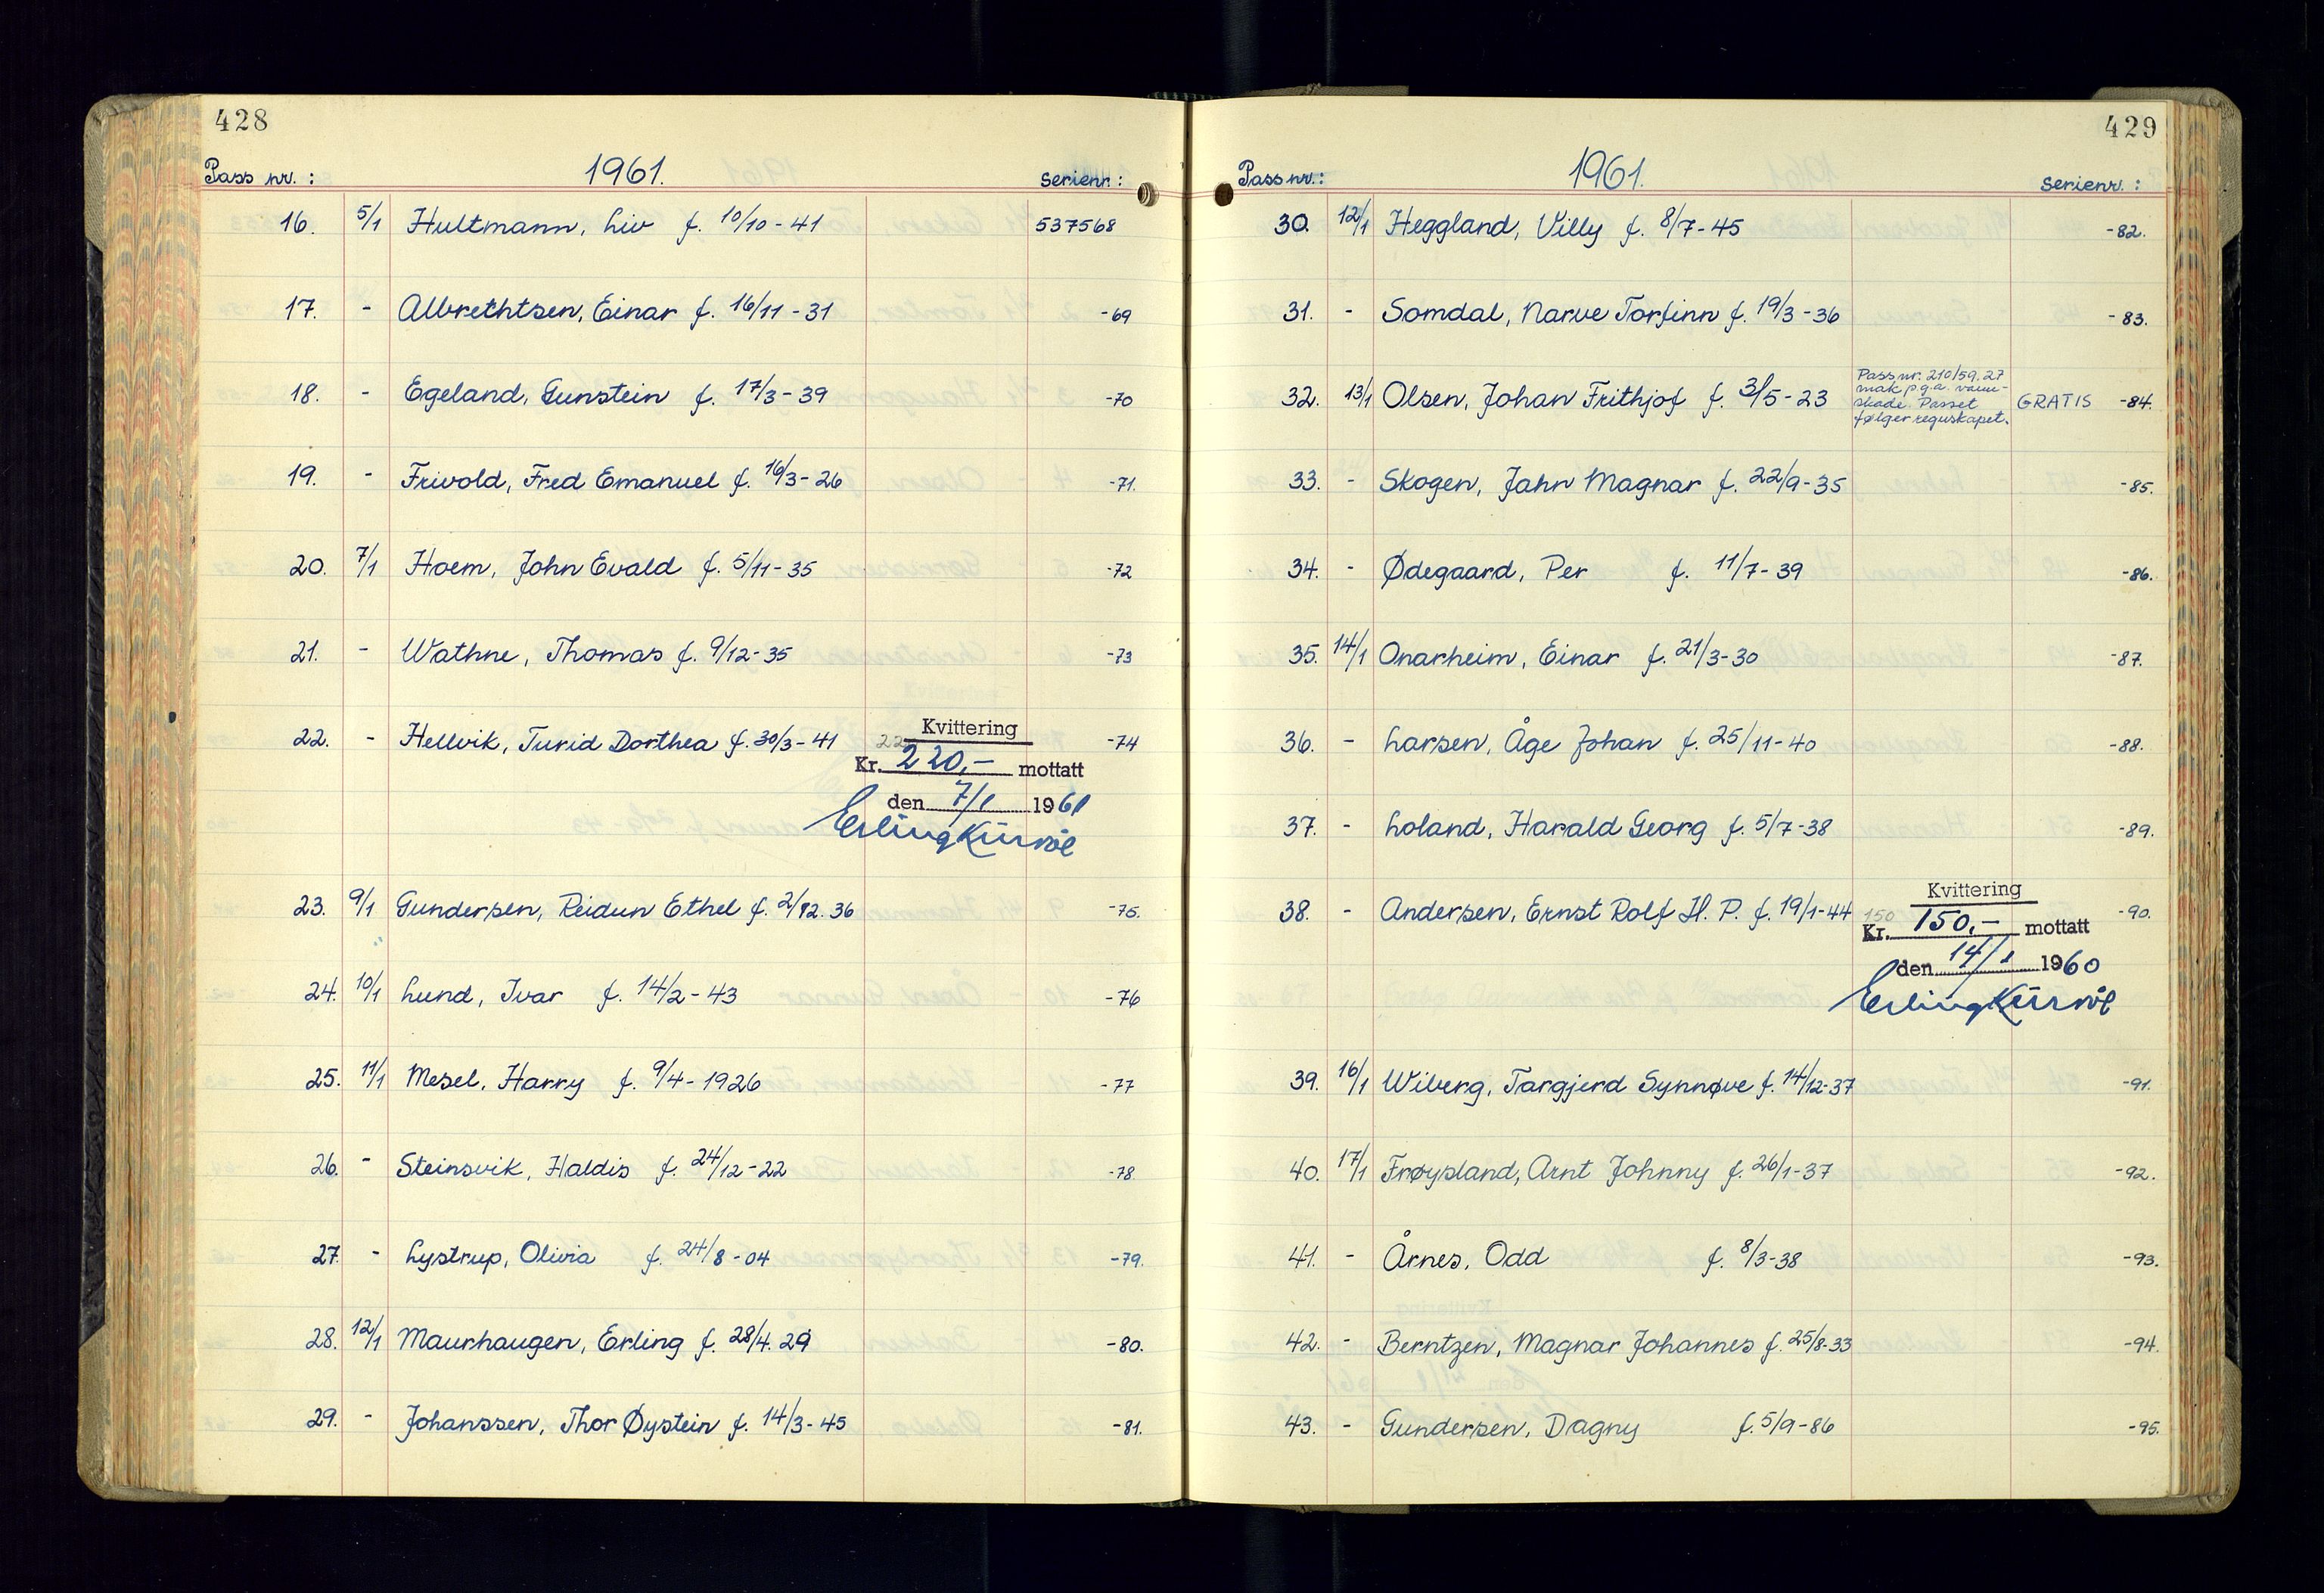 428
Pass nr.: 1961. Serienr.:
16. 5/1 Hultmann, Liv f. 10/10-41 537568
17. - Albrethtsen, Einar f. 16/11-31 -69
18. - Egeland, Gunstein f. 17/3-39 -70
19. - Frivold, Fred Emanuel f. 16/3-26 -71.
20. 7/1 Hoem, John Evald f. 5/11-35 -72
21. - Wathne, Thomas f. 9/12-35 -73
22. - Hellvik, Turid Dorthea f. 30/3-41 -74
Kvittering
Kr. 220,- mottatt
den 7/1 1961
Erling
23. 9/1 Gundersen, Reidun Ethel f. 2/12.36 -75.
24. 10/1 Lund, Ivar f. 14/2-43 -76
25. 11/1 Mesel, Harry f. 9/4-1926 -77
26. - Steinsvik, Haldis f. 24/12-22 -78.
27. - Lystrup, Olivia f. 24/8-04 -79.
28. 12/1 Maurhaugen, Erling f. 28/4.29 -80.
29. - Johanssen, Thor Øystein f. 14/3-45 -81.
429
Pass nr.: 1961. Serienr.:
30. 12/1 Heggland, Villy f. 8/7-45 -82.
31. - Somdal, Narve Torfinn f. 19/3-36 -83.
32. 13/1 Olsen, Johan Frithjof f. 3/5-23 GRATIS -84.
Pass nr. 210/59, 27
mak p.g.a. vann-
skade. Passet
følger regnskapet.
33. - Skogen, Jahn Magnar f. 22/9-35 -85.
34. - Ødegaard, Per f. 11/7-39 -86.
35. 14/1 Onarheim, Einar f. 21/3-30 -87.
36. - Larsen, Åge Johan f. 25/11-40 -88.
37. - Loland, Harald Georg f. 5/7-38 -89.
38. - Andersen, Ernst Rolf H. P. f. 19/1-44 -90.
150
Kvittering
Kr. 150,- mottatt
den 14/1 1960
Erling
39. 16/1 Wiberg, Targjerd Synnøve f. 14/12-37 -91.
40. 17/1 Frøysland, Arnt Johnny f. 26/1-37 -92.
41. - Årnes, Odd f. 8/3-38 -93.
42. - Berntzen, Magnar Johannes f. 25/8-33 -94.
43. - Gundersen, Dagny f. 5/9-86 -95.